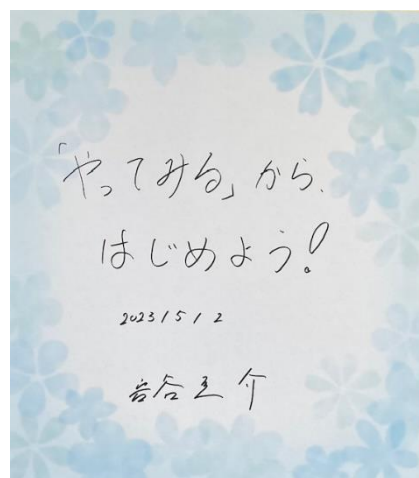 「やってみる」から、
はじめよう!
2023/5/2
岩谷圭介